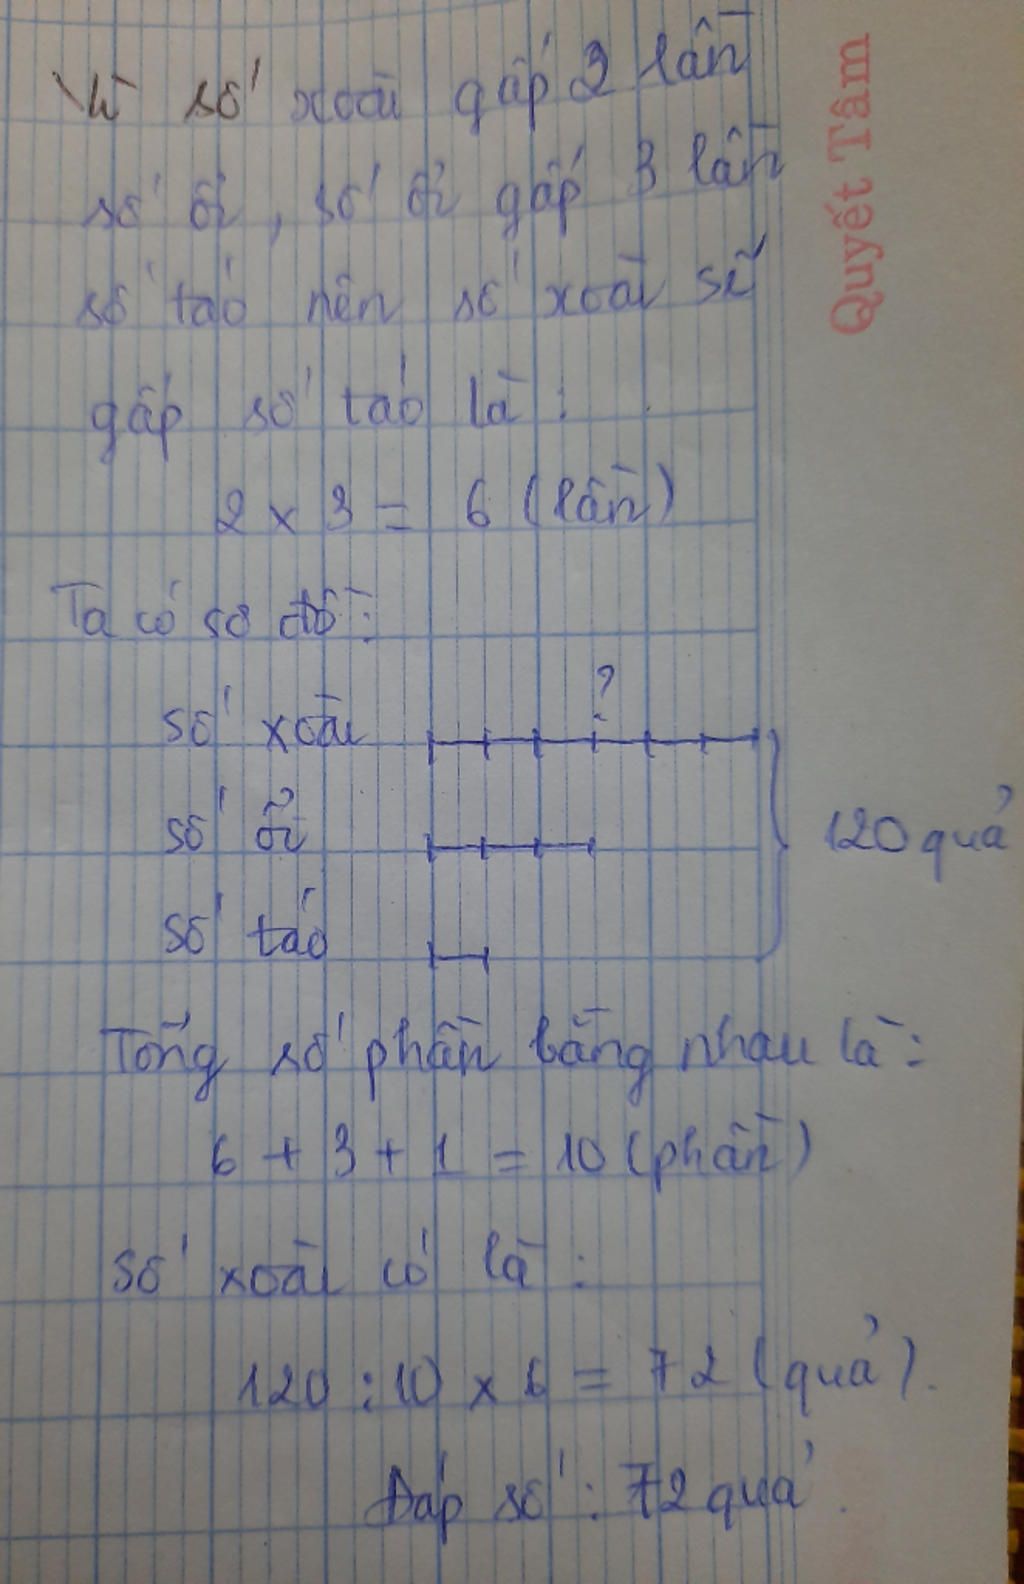 Vì số xoài gấp 2 lần
số ổi, số ổi gấp 3 lần
số táo nên số xoài sẽ
gấp số táo là:
2 x 3 = 6 (lần)
Ta có sơ đồ:
?
số xoài
số ổi
120 quả
số táo
Tổng số phần bằng nhau là:
6 + 3 + 1 = 10 (phần)
số xoài có là:
120 : 10 x 6 = 72 (quả).
Đáp số: 72 quả.
Quyết Tâm